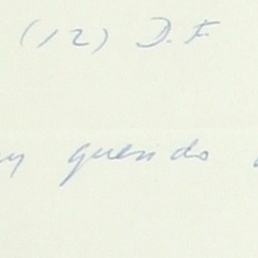 (12) D.F.
querido